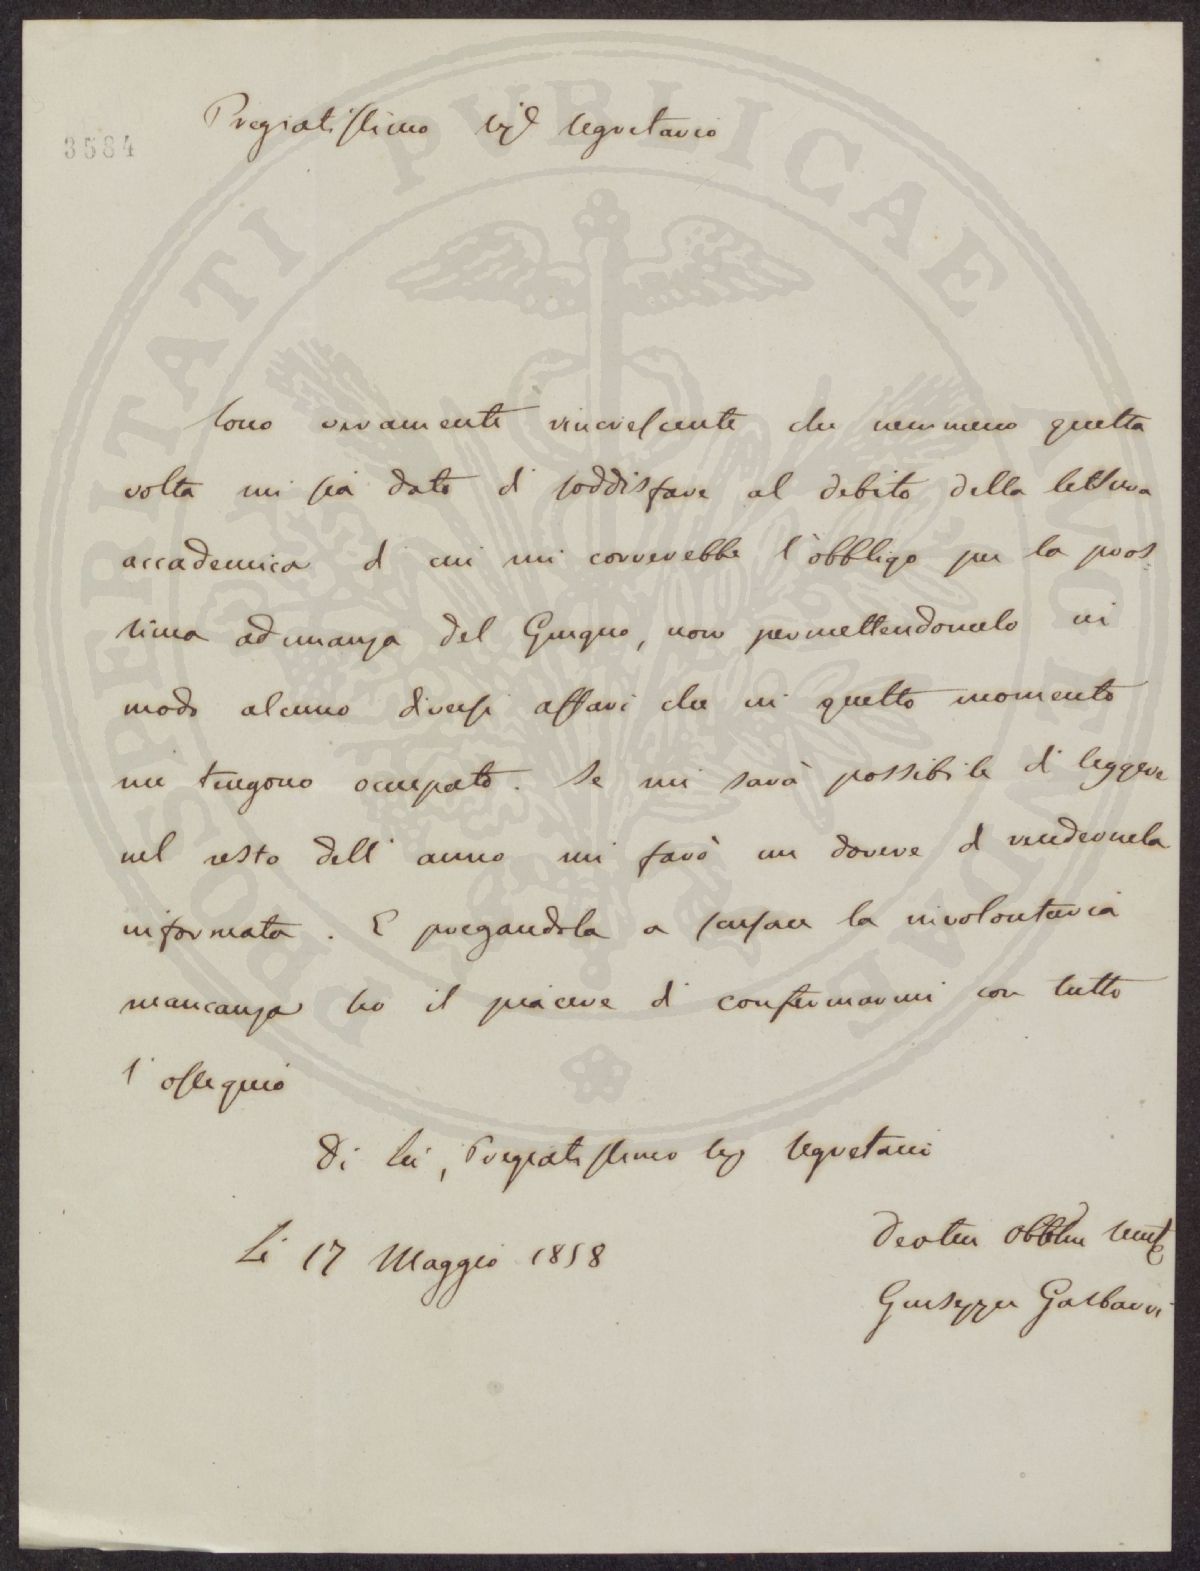 3584
Pregiatissimo Sigr Segretario
Sono veramente rincrescente che nemmeno questa
volta mi sia dato di soddisfare al debito della lettura
accademica di cui mi correrebbe l'obbligo per la pros
sima adunanza del Giugno, non permettendomelo in
modo alcuno diversi affari che in questo momento
me tengono occupato. Se mi sarà possibile di leggere
nel resto dell' anno mi farò un dovere di rendernela
informata. E pregandola a scusare la involontaria
mancanza ho il piacere di confermarmi con tutto
l'ossequio
Di Lei, Pregiatissimo Sig Segretario
Li 17 Maggio 1858
Devotm Obblm
Giuseppe Garbarri
PROSPERITATI PVBLICAE AVGENDAE